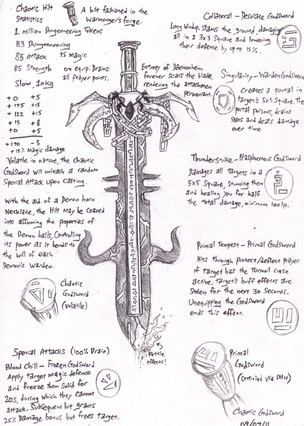 Chaotic Hilt
Statistics
A hilt fashioned in the
Warmonger's forge.
1 million Dungeoneering Tokens
113 Dungeoneering
85 Attack 75 Magic
85 Strength
on equip: Drains
all prayer points.
Slow, 10kg
+0 +5
+175 +15
+122 +15
+15 +8
+0 +5
+190 -5
+15% Magic damage
Volatile in nature, the Chaotic
Godsword will unleash a random
Special Attack upon casting.
With the aid of a Demon horn
Necklace, the Hilt may be coaxed
into assuming the properties of
the Demon halls, controlling
its power as it bonds to
the will of each
Demonic Warden.
Chaotic
Godsword
(Volatile)
Special Attacks (100% Drain)
Blood Chill - Frozen Godsword
Apply target Magic defence
and freeze them solid for
20s, during which they cannot
attack. Subsequent hit grants
25% Damage bonus but frees target.
Collateral - Desolate Godsword
Long Windup. Slams the ground damaging
all in a 3x3 Square and lowering
their defence by up to 15%.
Entities of Daemonheim
forever scars the blade
rendering the attachment
permanent.
Singularity - Warden Godsword
Creates a portal in
targets 5x5 Square. The
portal poisons, drains
stats and deals damage
over time.
Thunderstrike - Blasphemous Godsword
Damages all targets in a
5x5 Square, stunning them
and healing you for half
the total damage, minimum 100lp.
Primal Tempest - Primal Godsword
Hits through Protect/Deflect Prayer.
If target has the Turmoil curse
active, target's buff effects are
stolen for the next 30 seconds.
Unequipping the Godsword
ends this effect.
Particle
effects!
Primal
Godsword
(Controlled via DHN)
Chaotic Godsword